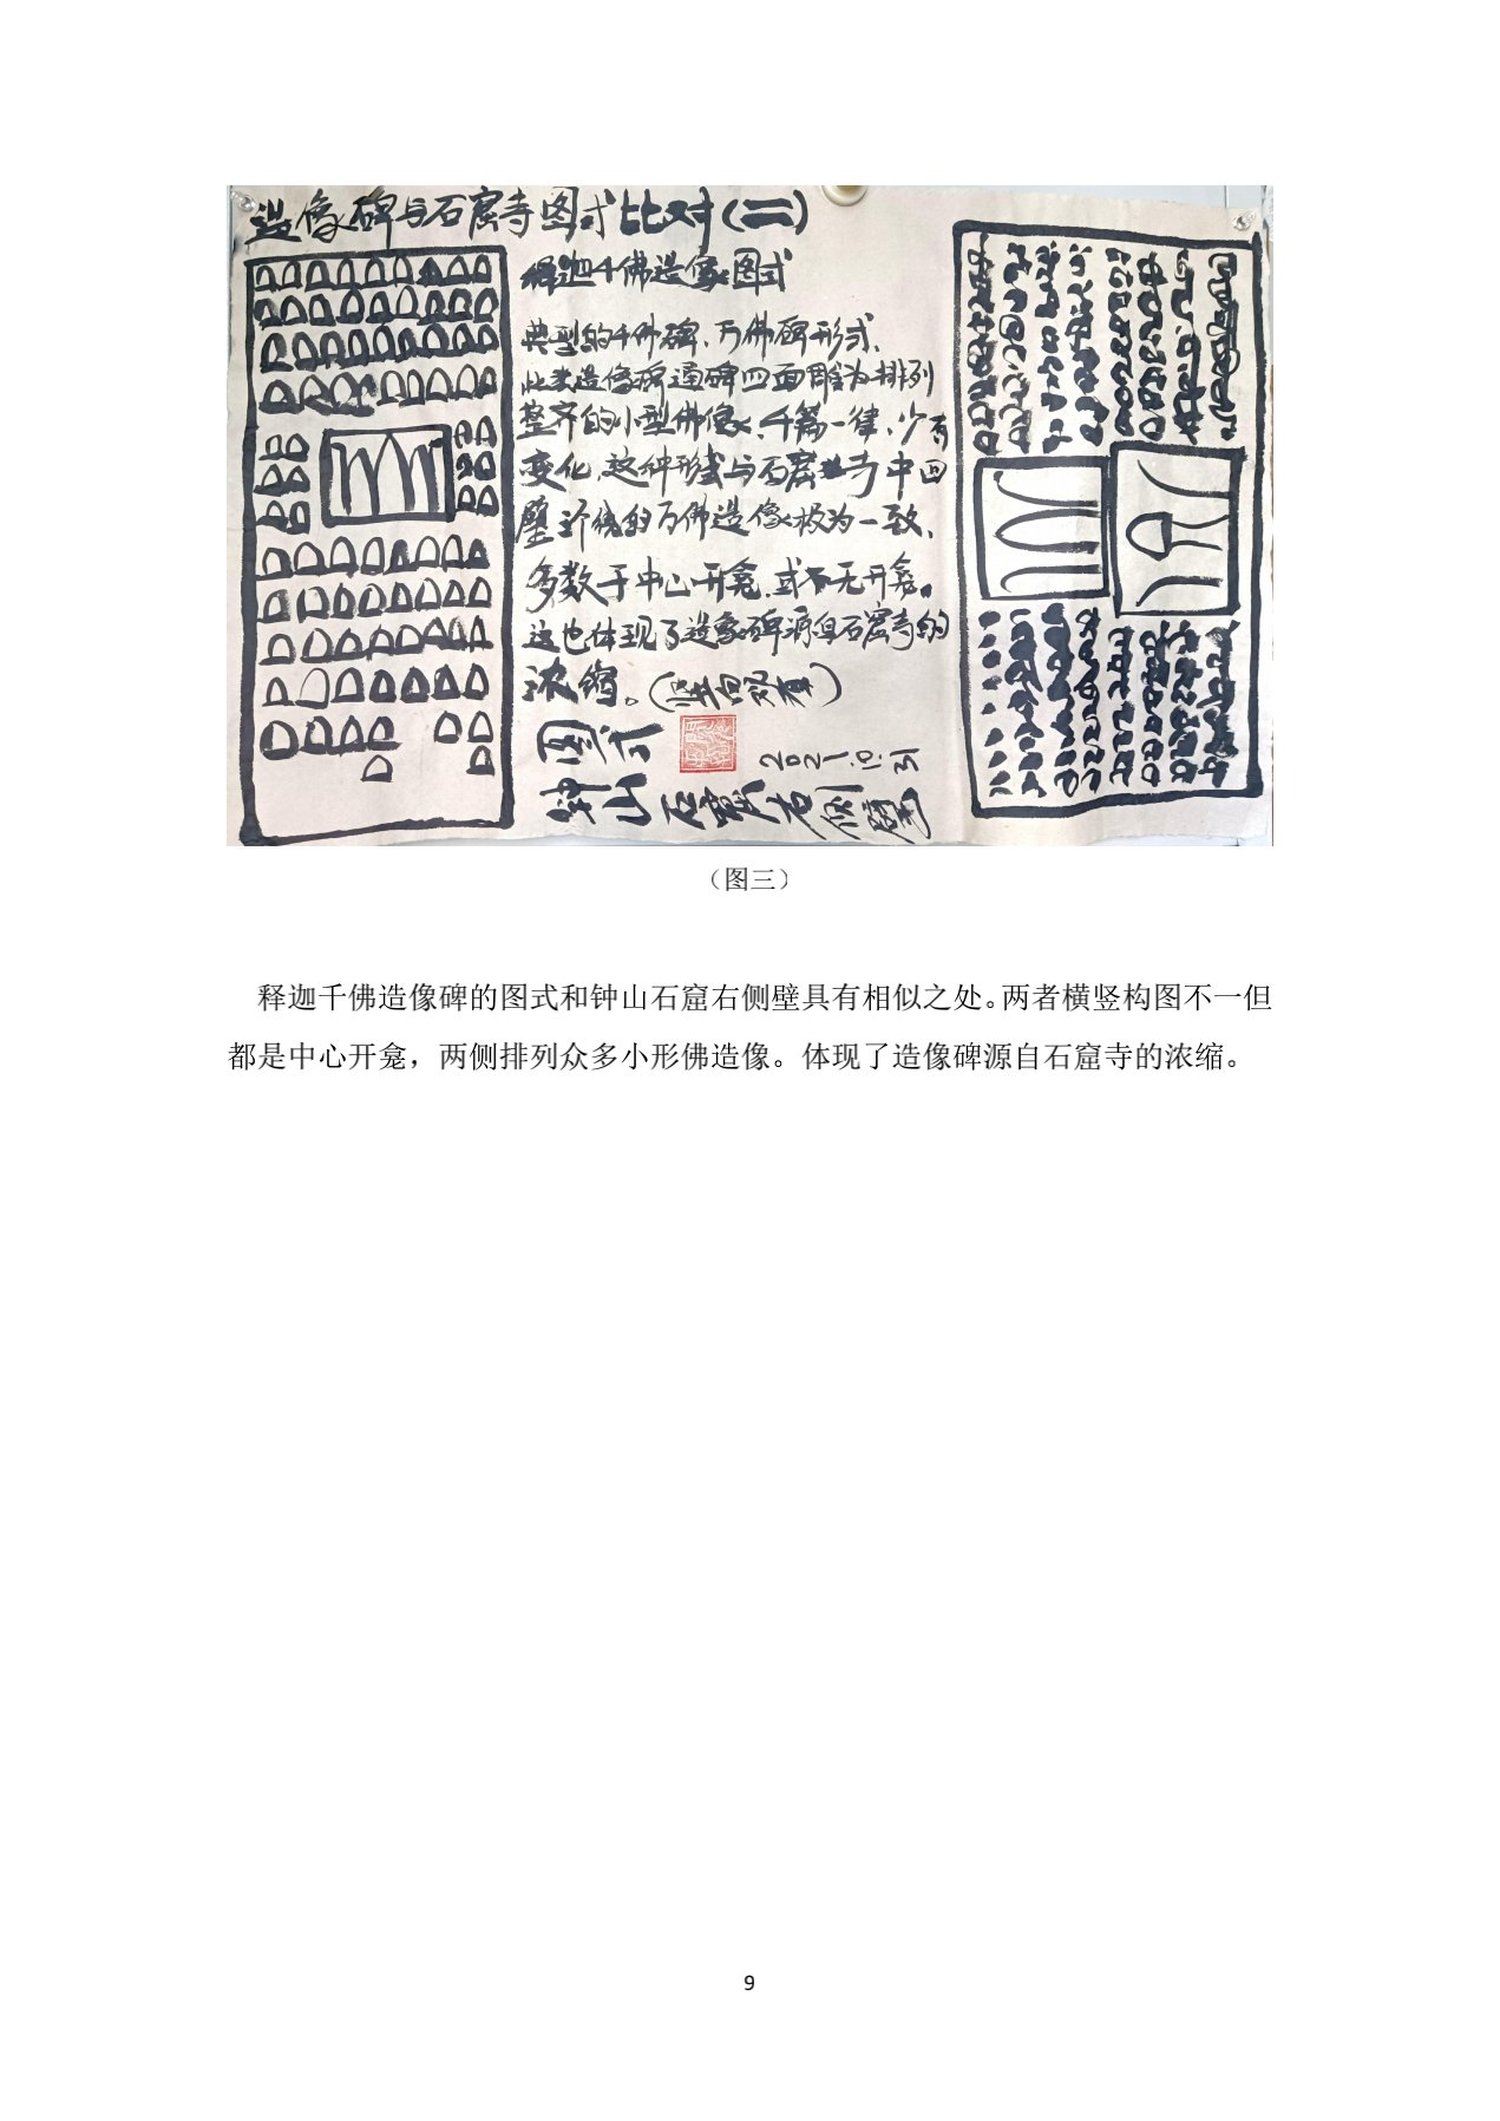 造像碑与石窟寺图式比对(二)
释迦千佛造像图式
典型的千佛碑、万佛碑形式、
此类造像碑通碑四面雕为排列
整齐的小型佛像、千篇一律、少有
变化、这种形式与石窟寺中四
壁的万佛造像极为一致、
多数于中心开龛、或无开龛。
这也体现了造象碑源自石窟寺的
浓缩。
图式
2021.10.31
钟山石窟右侧壁
（图三）
释迦千佛造像碑的图式和钟山石窟右侧壁具有相似之处。两者横竖构图不一但
都是中心开龛，两侧排列众多小形佛造像。体现了造像碑源自石窟寺的浓缩。
9